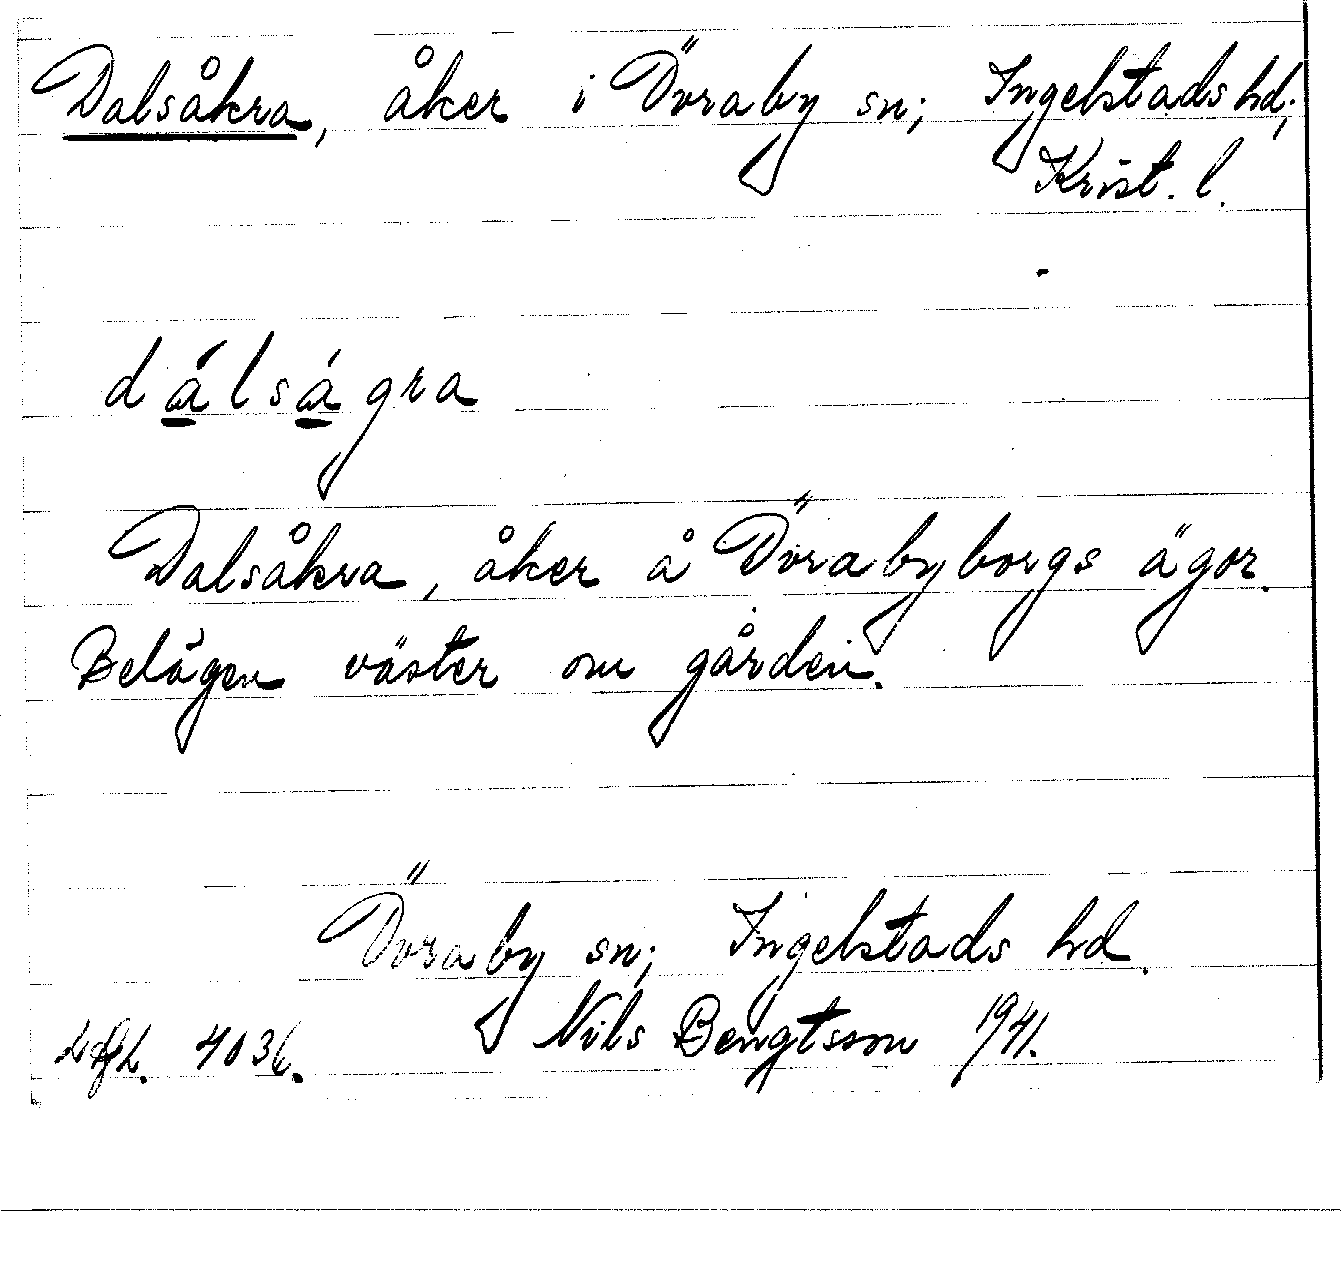 Dalsåkra, åker i Övraby sn; Ingelstads hd;
Krist. l.
dálságra
Dalsåkra, åker å Övrabyborgs ägor.
Belägen väster om gården.
Övraby sn; Ingelstads hd.
Nils Bengtsson 1941.
4036.